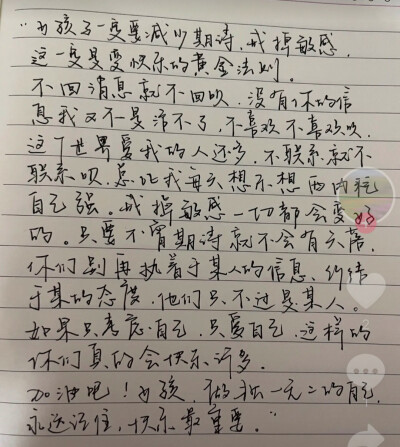 "女孩子一定要减少期待,戒掉敏感,
这一定是变快乐的黄金法则。
不回消息就不回呗,没有你的信
息我又不是活不了,不喜欢不喜欢呗,
这个世界爱我的人还多,不联系就不
联系呗,总比我每天想东想西内耗
自己强。戒掉敏感一切都会变好
的。只要不有期待就不会有失落,
你们别再执着于某人的信息,纠结
于某的态度,他们只不过是某人。
如果只考虑自己,只爱自己,这样的
你们真的会快乐许多。
加油吧!女孩,做独一无二的自己,
永远记住,快乐最重要。"